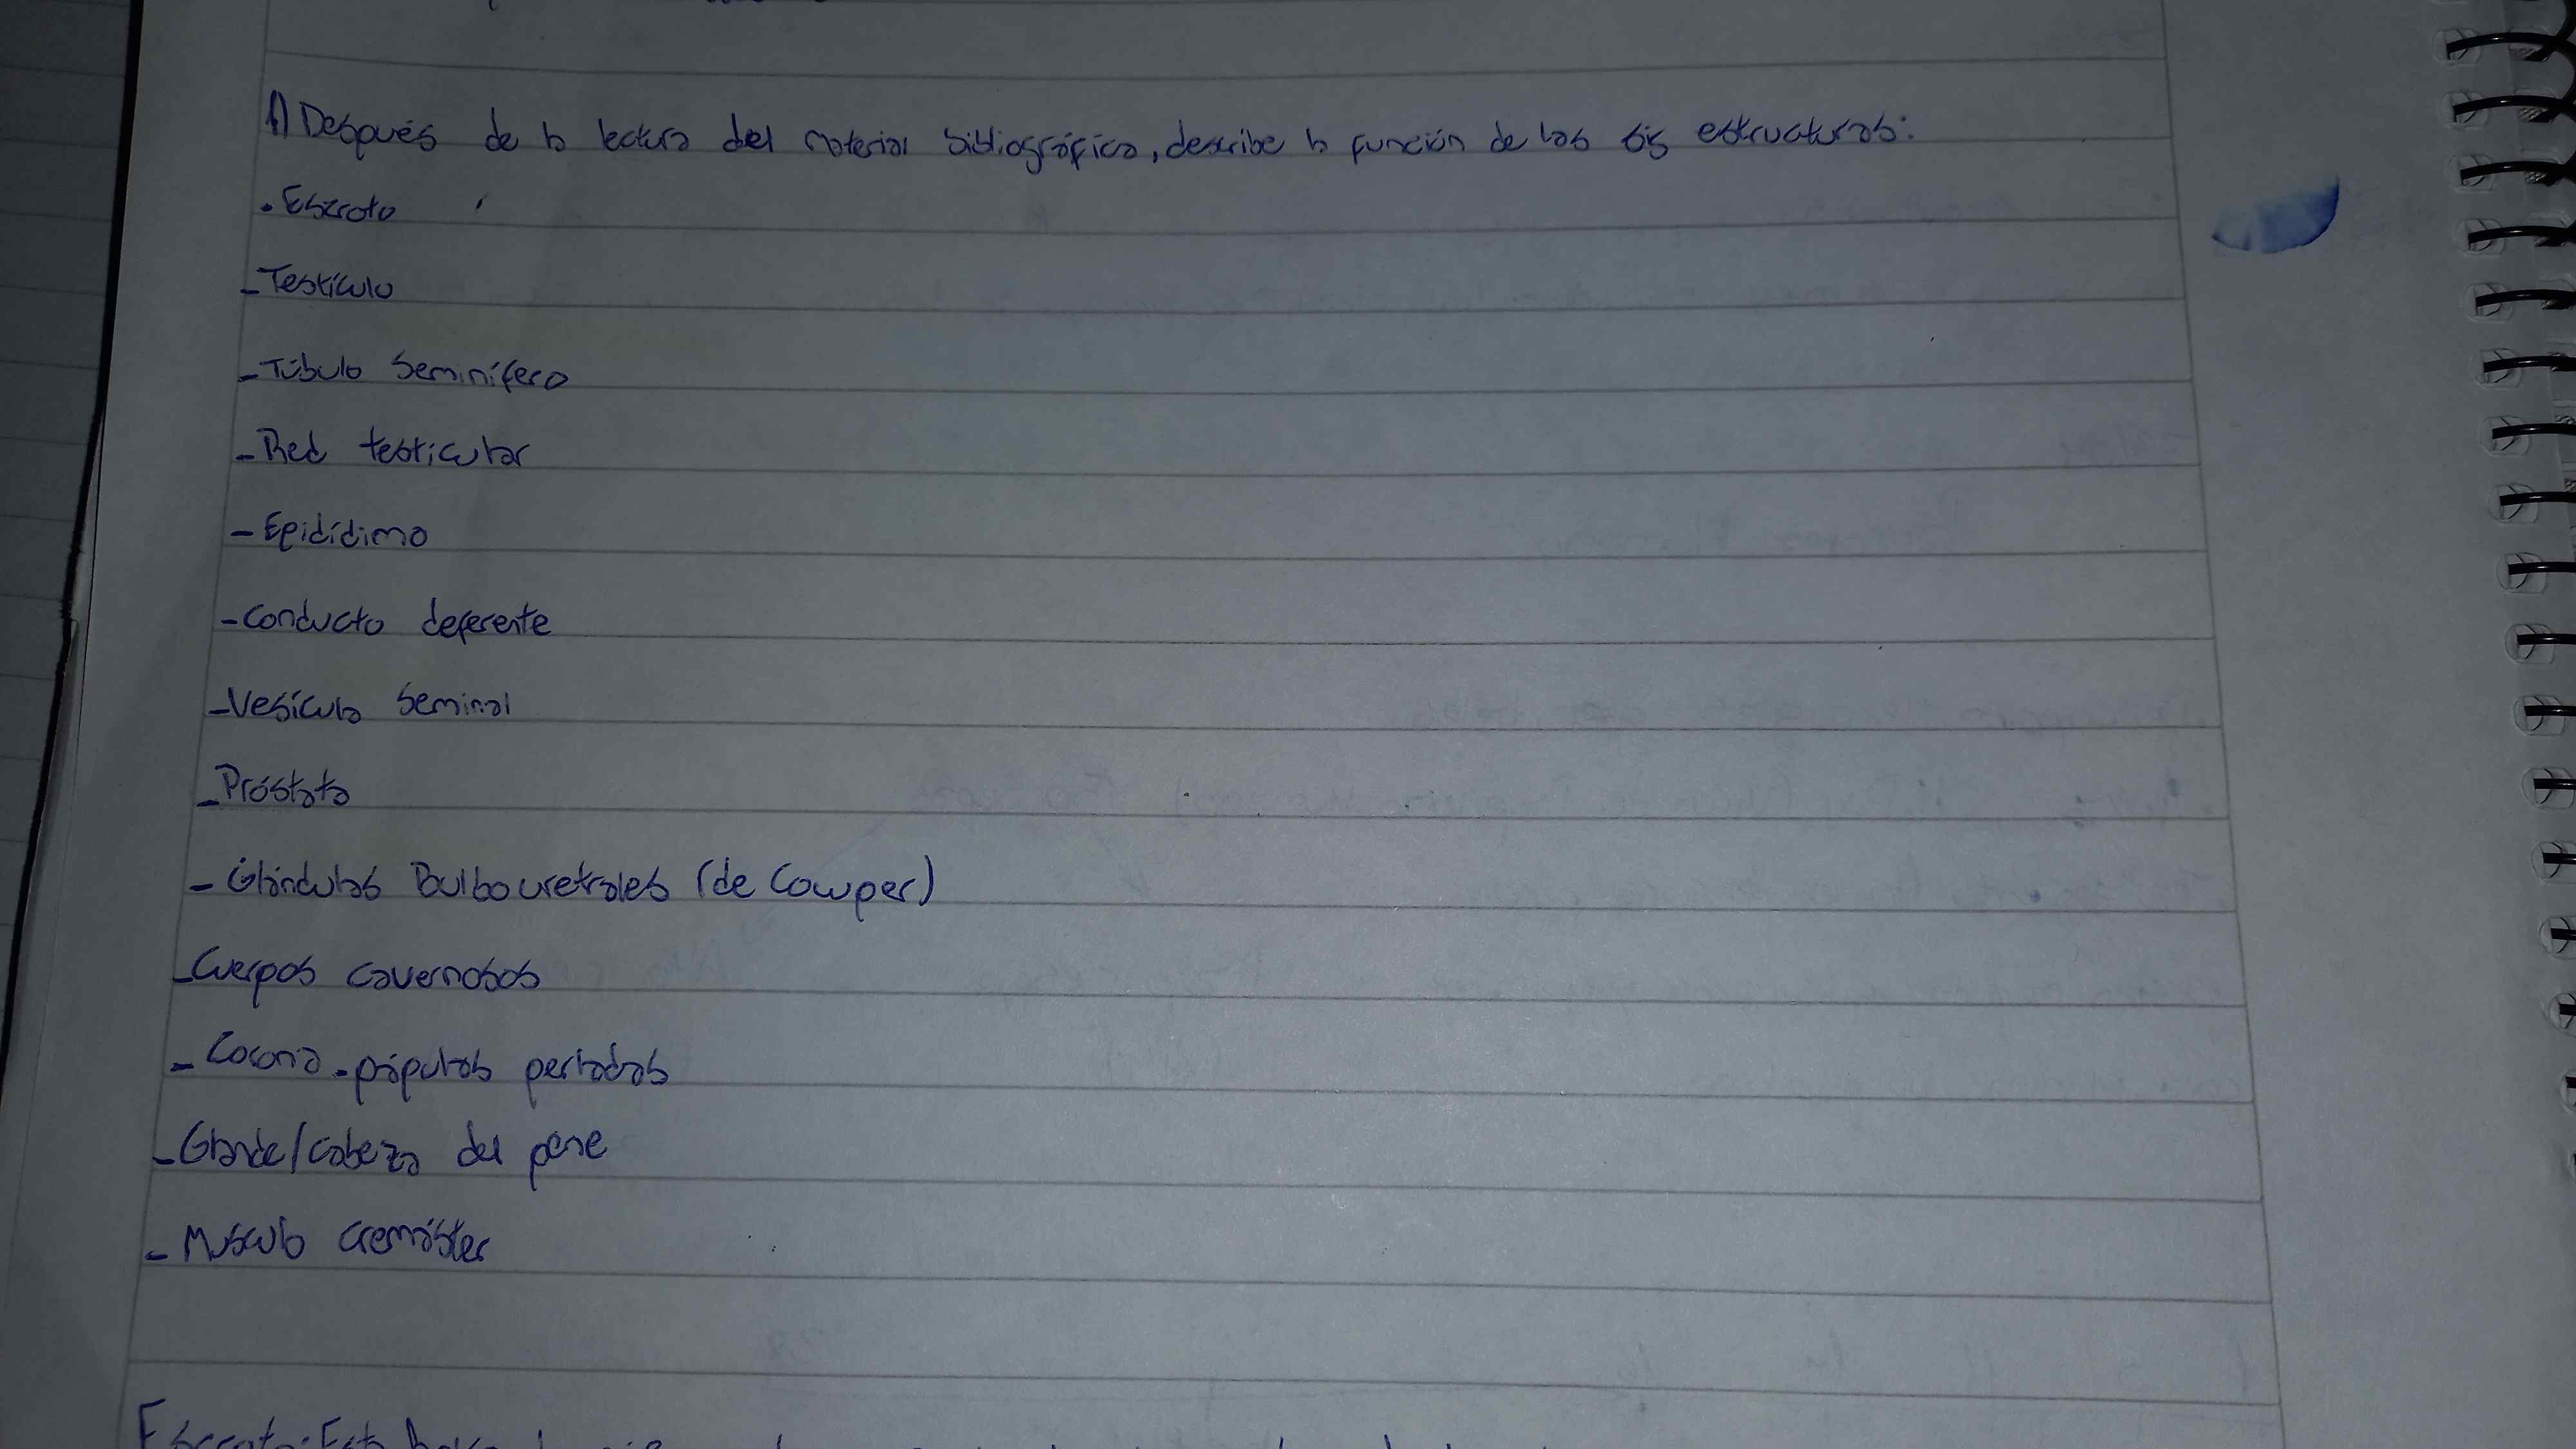 1) Después de la lectura del material bibliográfico, describe la función de las sig estructuras:
. Escroto
- Testículo
- Túbulo Seminífero
- Red testicular
- Epidídimo
- Conducto deferente
- Vesícula Seminal
- Próstata
- Glándulas Bulbouretrales (de Cowper)
- Cuerpos cavernosos
- Corona - pápulas perladas
- Glande/Cabeza del pene
- Músculo cremáster
Escroto: Esta